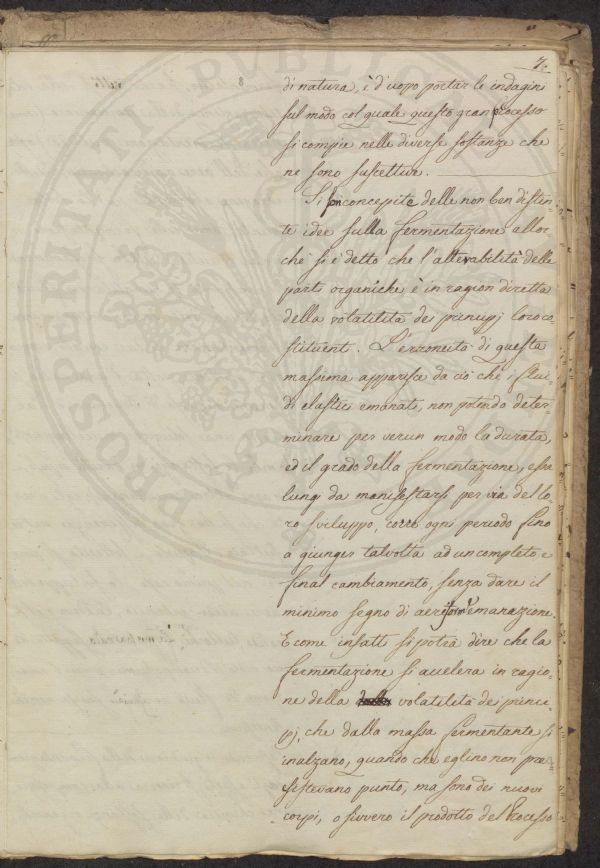 7.
di natura, è d'uopo portar le indagini
sul modo col quale questo gran processo
si compie nelle diverse sostanze che
ne sono suscettive.
Si son concepite delle non ben distin-
te idee sulla fermentazione allor
chè si è detto che l'alterabilità delle
parti organiche è in ragion diretta
della volatilità dei principj loro co-
stituenti. L'erroneità di questa
massima apparisce da ciò che i flui-
di elastici emanati, non potendo deter-
minare per verun modo la durata,
ed il grado della fermentazione, essa
lungi da manifestarsi per via del lo-
ro sviluppo, corre ogni periodo fino
a giunger talvolta ad un completo, e
final cambiamento, senza dare il
minimo segno di aeriforme emanazione.
E come infatti si potrà dire che la
fermentazione si accelera in ragio-
ne della volatilità dei princi-
pj, che dalla massa fermentante si
inalzano, quando che eglino non pre-
sistevano punto, ma sono dei nuovi
corpi, o sivvero il prodotto del Processo
PROSPERITATI PVBLICAE
8